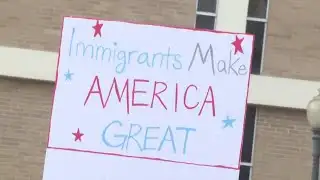 Immigrants Make
AMERICA
GREAT